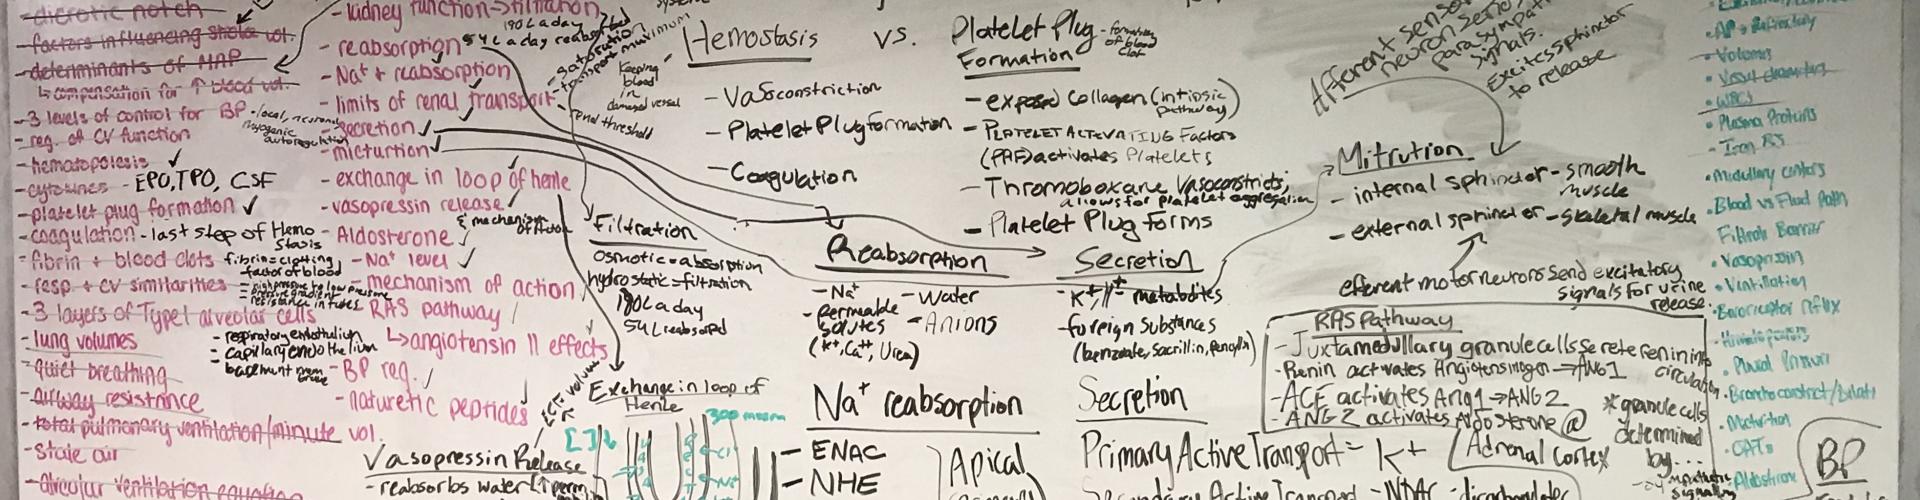 - dicrotic notch
- factors influencing stroke vol.
- determinants of MAP
↳ compensation for ↑ blood vol.
- 3 levels of control for BP - local, neuronal
myogenic
autoregulation
- reg. of CV function
- hematopoiesis ✓
- cytokines - EPO, TPO, CSF
- platelet plug formation ✓
- coagulation - last step of Hemo
stasis
- fibrin + blood clots fibrin = clotting
factor of blood
- resp + cv similarities = high pressure to low pressure
= pressure gradient
= resistance in tubes
- 3 layers of Type 1 alveolar cells
- respiratory endothelium
- capillary endothelium
- basement mem
brane
- lung volumes
- quiet breathing
- airway resistance
- total pulmonary ventilation/minute vol.
- stale air
- alveolar ventilation equation
- kidney function → filtration
190L a day
- reabsorption 54L a day reabsorbed
- Na+ reabsorption
- limits of renal transport
- secretion ✓
- micturtion ✓
- exchange in loop of henle
- vasopressin release ✓
& mechanism
of Action
- Aldosterone ✓
- Na+ level ✓
- mechanism of action
- RAS pathway
↳ angiotensin II effects
- BP reg. ✓
- naturetic peptides
- saturation
- transport maximum
- renal threshold
Keeping
blood
in
damaged vessel
Hemostasis
- Vasoconstriction
- Platelet Plug formation
- Coagulation
vs.
Platelet Plug - formation
of blood
clot
Formation
- exposed Collagen (intinsic
pathway)
- PLATELET ACTIVATING Factors
(PAF) activates Platelets
- Thromboxane Vasoconstricts,
allows for platelet aggregation
- Platelet Plug Forms
Afferent sensory
neuron send
parasympathetic
signals.
Excites sphincter
to release
Mitrution
- internal sphincter - smooth
muscle
- external sphincter - skeletal muscle
efferent motor neurons send excitatory
signals for urine
release.
Filtration
osmotic = absorption
hydrostatic = filtration
190L a day
54L reabsorbed
Reabsorption
- Na+
- Permeable
solutes
(K+, Ca++, Urea)
- Water
- Anions
Secretion
- K+, H+ metabolites
- foreign Substances
RAS Pathway
- Juxtamedullary granule cells secrete renin into
circulation
- Renin activates Angiotensinogen → ANG1
- ACE activates Ang1 → ANG2
- ANG2 activates Aldosterone @
Adrenal Cortex
* granule cells
determined
by...
Exchange in loop of
Henle
300 mosm
[ ]↓
Vasopressin Release
- reabsorbs water
Na+ reabsorption
- ENAC
- NHE
Apical
Secretion
Primary Active Transport = K+
- Volumes
- Vessel diameters
- WBCs
- Plasma Proteins
- Medullary centers
- Blood vs Fluid Path
Filtratn Barrier
- Vasopressin
- Ventilation
- Baroreceptor reflux
- Bronchoconstrict/Dilate
- Micturition
- Aldosterone
BP